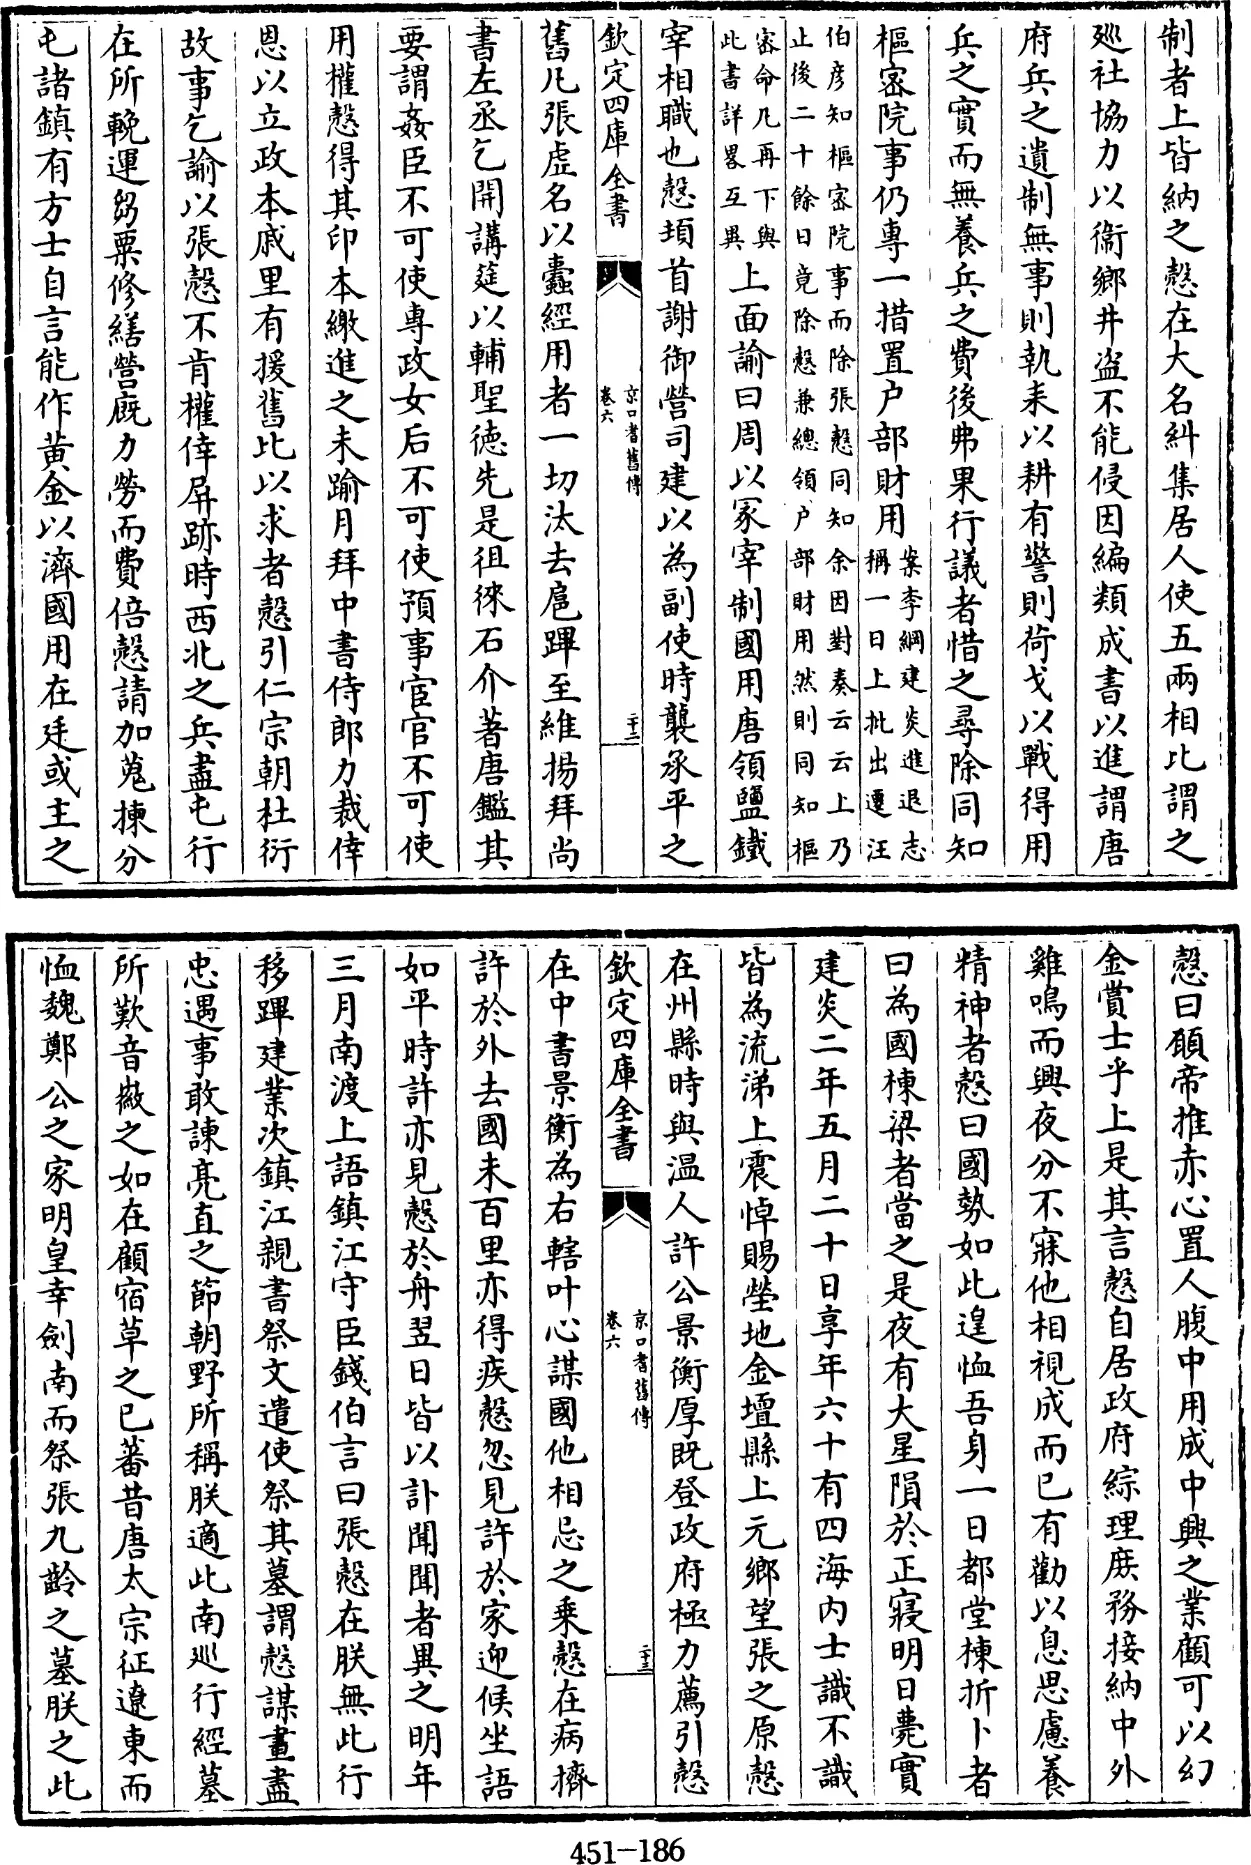 制者上皆納之慤在大名糾集居人使五兩相比謂之
巡社協力以衞鄉井盗不能侵因編類成書以進謂唐
府兵之遺制無事則執耒以耕有警則荷戈以戰得用
兵之實而無養兵之費後弗果行議者惜之尋除同知
樞密院事仍專一措置户部財用案李綱建炎進退志
稱一日上批出遷汪
伯彦知樞密院事而除張慤同知余因對奏云云上乃
止後二十餘日竟除慤兼總領户部財用然則同知樞
密命凡再下與
此書詳畧互異上面諭曰周以冢宰制國用唐領鹽鐵
宰相職也慤頓首謝御營司建以為副使時襲承平之
欽定四庫全書
京口耆舊傳
卷六
二十二
舊凡張虚名以蠹經用者一切汰去扈蹕至維揚拜尚
書左丞乞開講筵以輔聖德先是徂徠石介著唐鑑其
要謂姦臣不可使專政女后不可使預事宦官不可使
用權慤得其印本繳進之未踰月拜中書侍郎力裁倖
恩以立政本戚里有援舊比以求者慤引仁宗朝杜衍
故事乞諭以張慤不肯權倖屏跡時西北之兵盡屯行
在所輓運芻粟修繕營廐力勞而費倍慤請加蒐揀分
屯諸鎮有方士自言能作黄金以濟國用在廷或主之
慤曰願帝推赤心置人腹中用成中興之業顧可以幻
金賞士乎上是其言慤自居政府綜理庶務接納中外
雞鳴而興夜分不寐他相視成而已有勸以息思慮養
精神者慤曰國勢如此遑恤吾身一日都堂棟折卜者
曰為國棟梁者當之是夜有大星隕於正寢明日薨實
建炎二年五月二十日享年六十有四海内士識不識
皆為流涕上震悼賜塋地金壇縣上元鄉望張之原慤
在州縣時與温人許公景衡厚既登政府極力薦引慤
欽定四庫全書
京口耆舊傳
卷六
二十三
在中書景衡為右轄叶心謀國他相忌之乗慤在病擠
許於外去國未百里亦得疾慤忽見許於家迎候坐語
如平時許亦見慤於舟翌日皆以訃聞聞者異之明年
三月南渡上語鎮江守臣錢伯言曰張慤在朕無此行
移蹕建業次鎮江親書祭文遣使祭其墓謂慤謀畫盡
忠遇事敢諫亮直之節朝野所稱朕適此南巡行經墓
所歎音徽之如在顧宿草之已蕃昔唐太宗征遼東而
恤魏鄭公之家明皇幸劍南而祭張九齡之墓朕之此
451-186